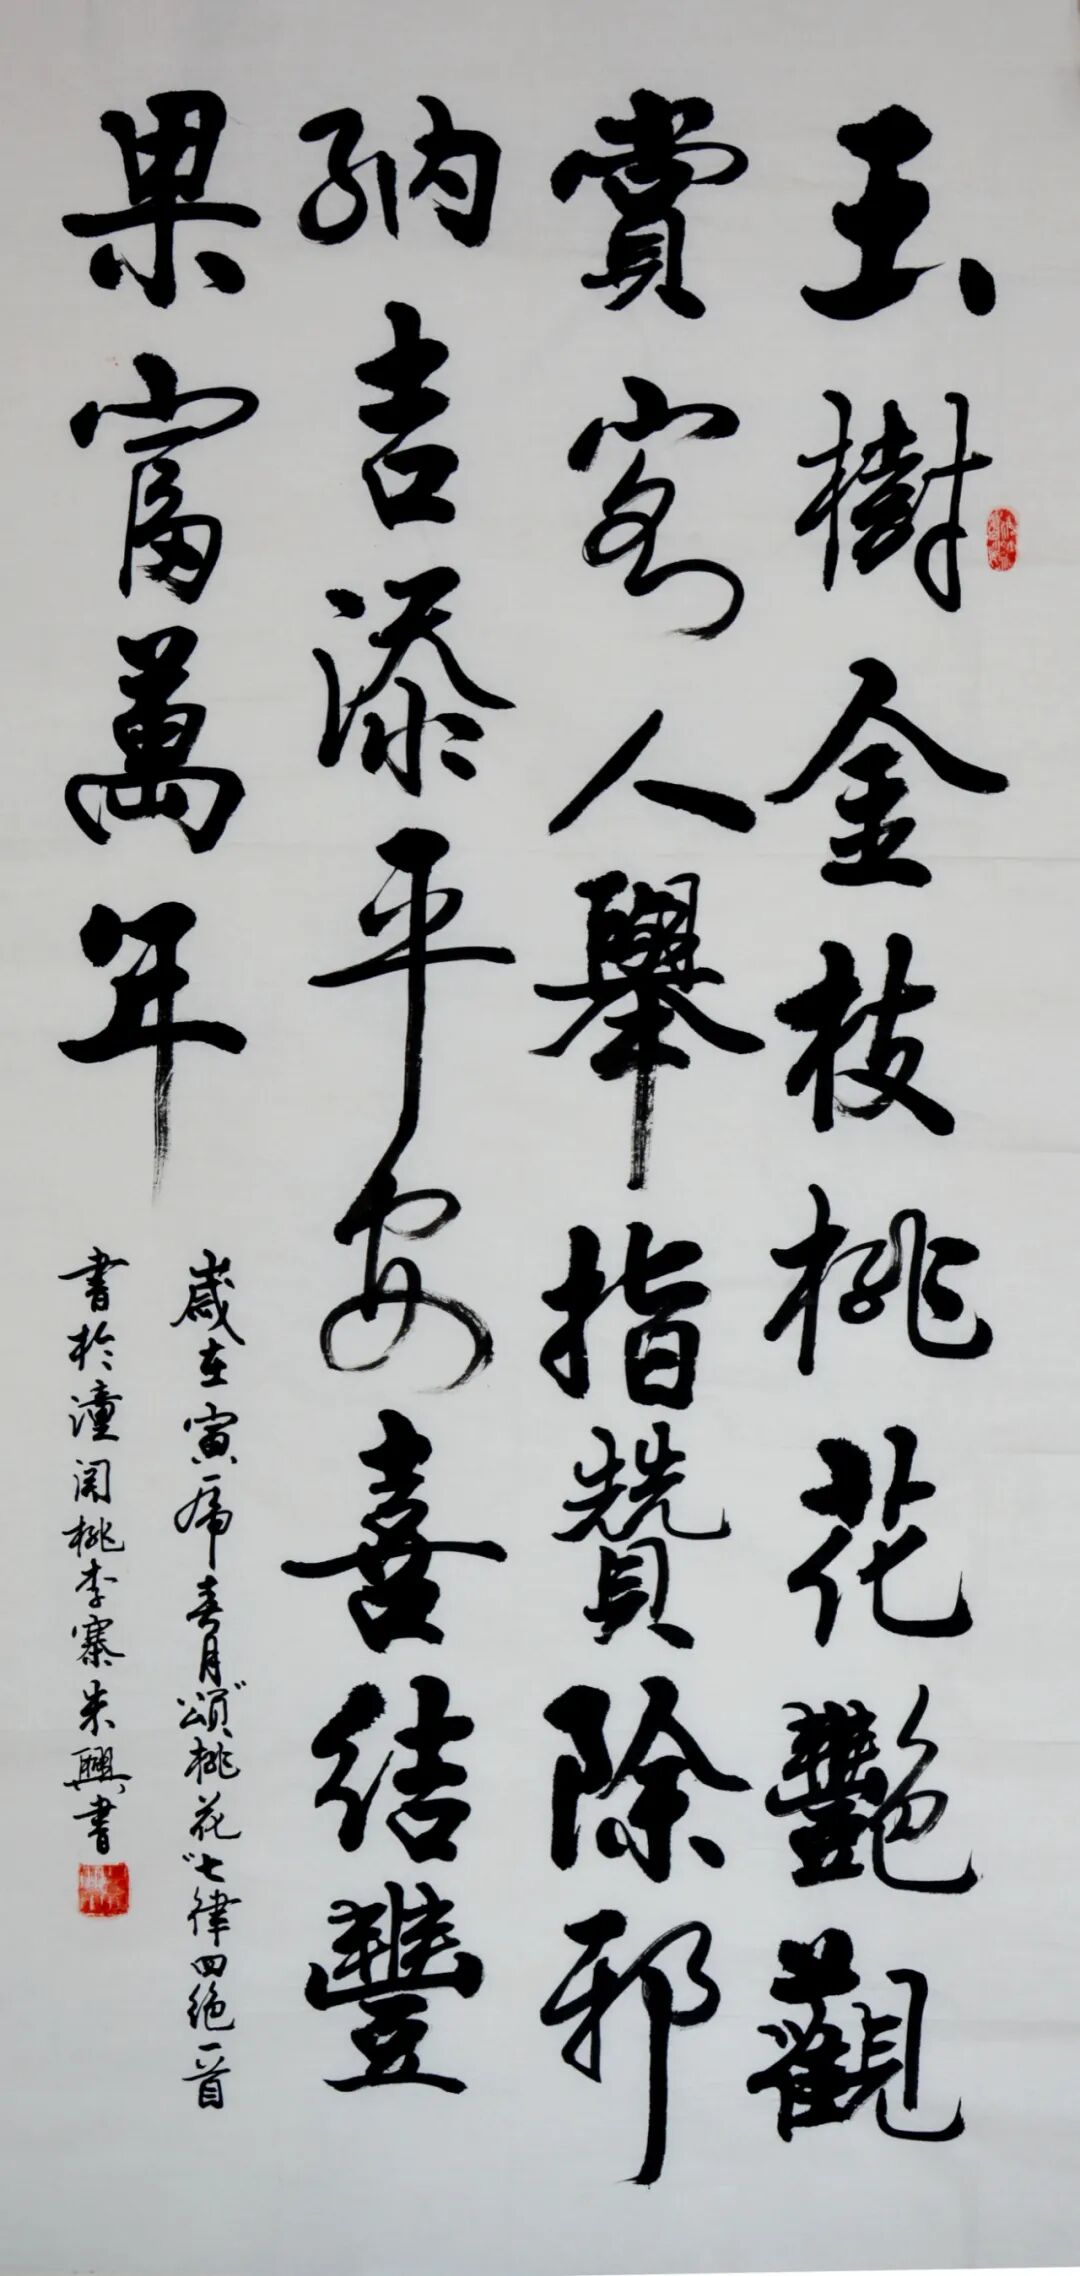 玉樹金枝桃花艷觀
賞客人舉指贊除邪
納吉添平安喜結豐
果富萬年
歲在寅虎春月"頌桃花"七律四絕一首
書於潼関桃李寨朱興書